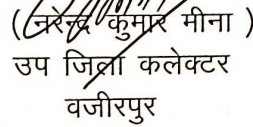 (नरेन्द्र कुमार मीना )
उप जिला कलेक्टर
वजीरपुर